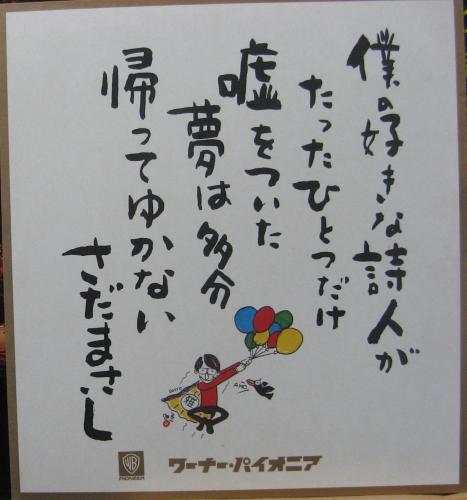 僕の好きな詩人が
たったひとつだけ
嘘をついた
夢は多分
帰ってゆかない
さだまさし
雅
WB
PIONEER
ワーナー・パイオニア